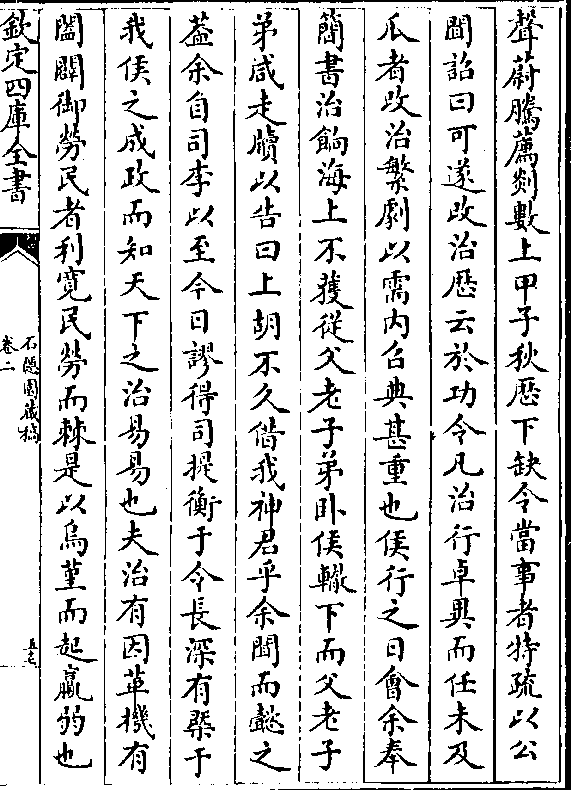 聲蔚騰薦剡數上甲子秋歴下缺令當事者特疏以公
聞詔曰可遂改治歴云於功令凡治行卓異而任未及
瓜者改治繁劇以需内召典甚重也侯行之日會余奉
簡書治餉海上不獲從父老子弟卧侯轍下而父老子
弟咸走牘以告曰上胡不久借我神君乎余聞而懿之
葢余自司李以至今日謬得司提衡于令長深有槩于
我侯之成政而知天下之治易易也夫治有因革機有
闔闢御勞民者利寛民勞而棘是以烏菫而起羸弱也
欽定四庫全書
石隱園藏稿
卷二